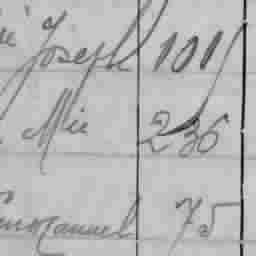 Joseph 101
Mie 236
Emmanuel 75